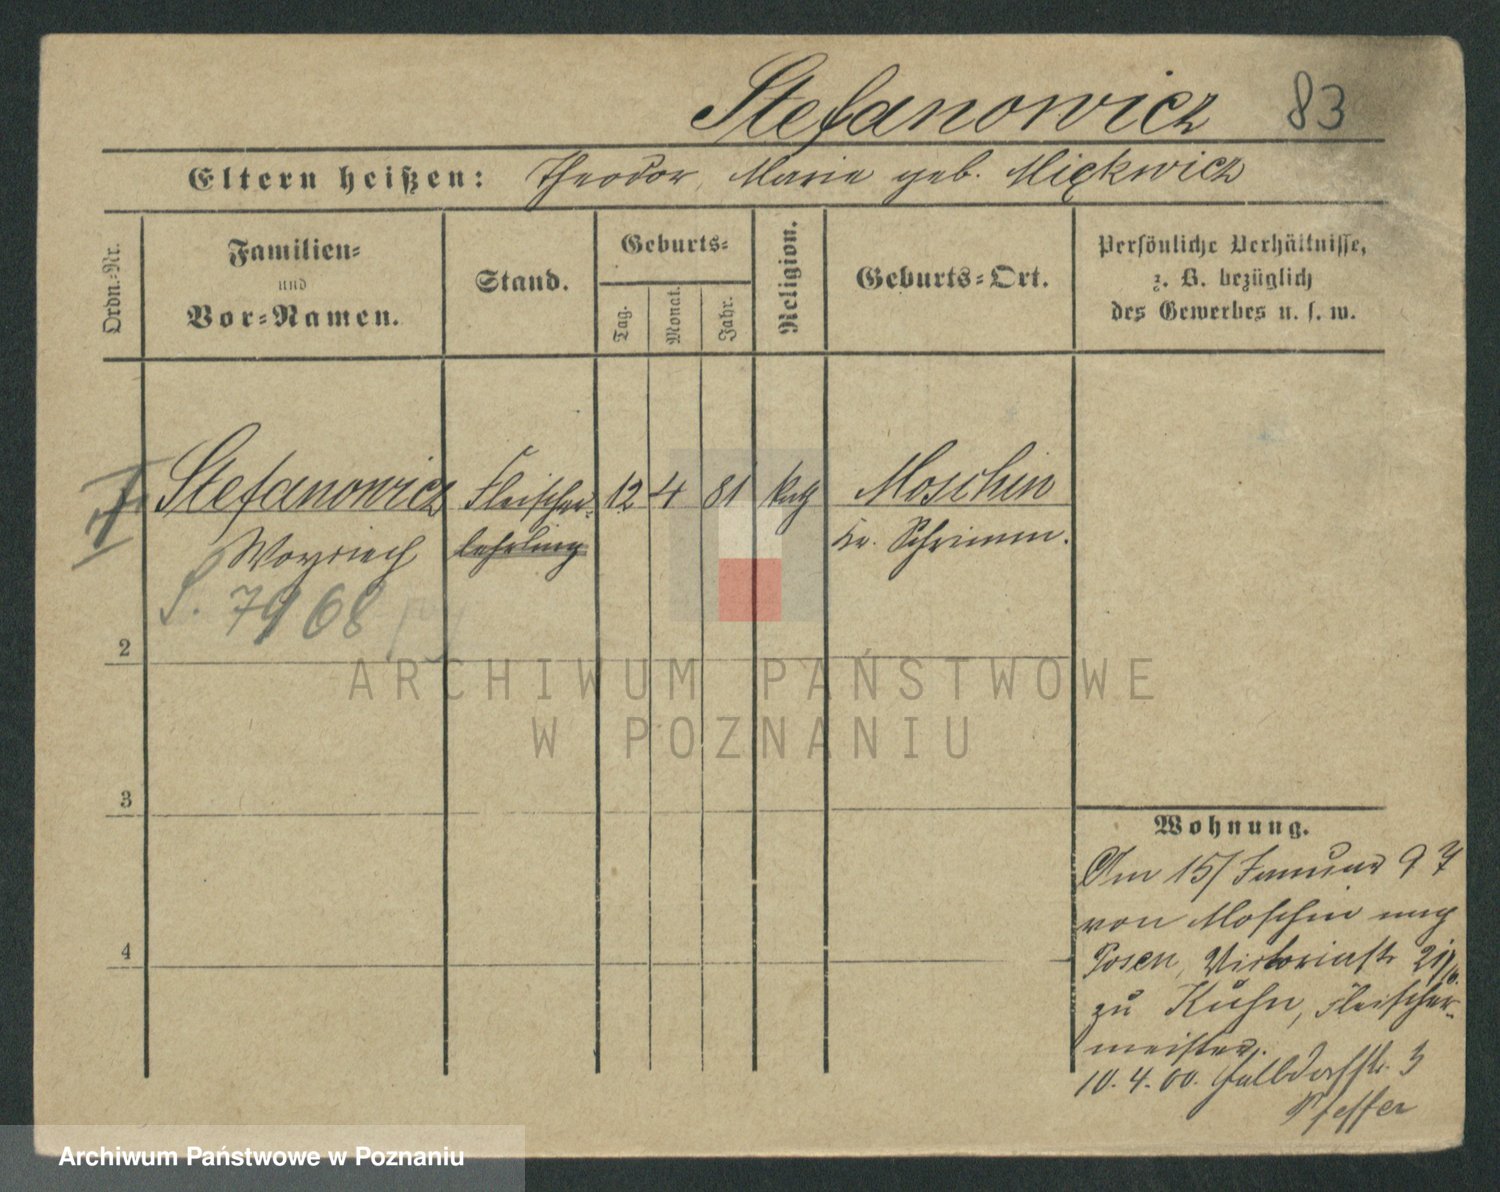 Stefanowicz 83
Eltern heißen: Theodor, Marie geb. Miękwicz
Ordn.-Nr.
Familien-
und
Vor-Namen.
Stand.
Geburts-
Tag.
Monat.
Jahr.
Religion.
Geburts-Ort.
Persönliche Verhältnisse,
z. B. bezüglich
des Gewerbes u. s. w.
Stefanowicz Fleischer- 12 4 81 kath Moschin
Woyciech lehrling Kr. Schrimm.
S. 7968
2
3
4
Wohnung.
Am 15/ Januar 97
von Moschin nach
Posen, Victoriastr 21
zu Kuhn, Fleischer-
meister.
10. 4. 00. Halbdorfstr. 3
Pfeffer
ARCHIWUM PAŃSTWOWE
W POZNANIU
Archiwum Państwowe w Poznaniu